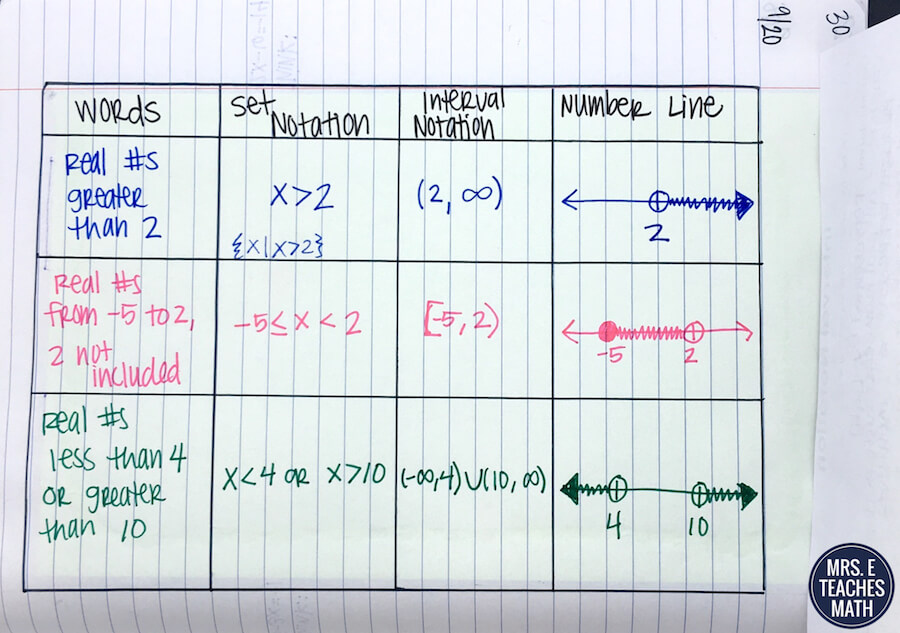 30
9/20
Words
Set
Notation
Interval
Notation
Number Line
Real #s
greater
than 2
x>2
{x|x>2}
(2, ∞)
2
Real #s
from -5 to 2,
2 not
included
-5≤ x < 2
[-5, 2)
-5 2
Real #s
less than 4
or greater
than 10
x<4 or x>10
(-∞,4)∪(10, ∞)
4 10
MRS. E
TEACHES
MATH